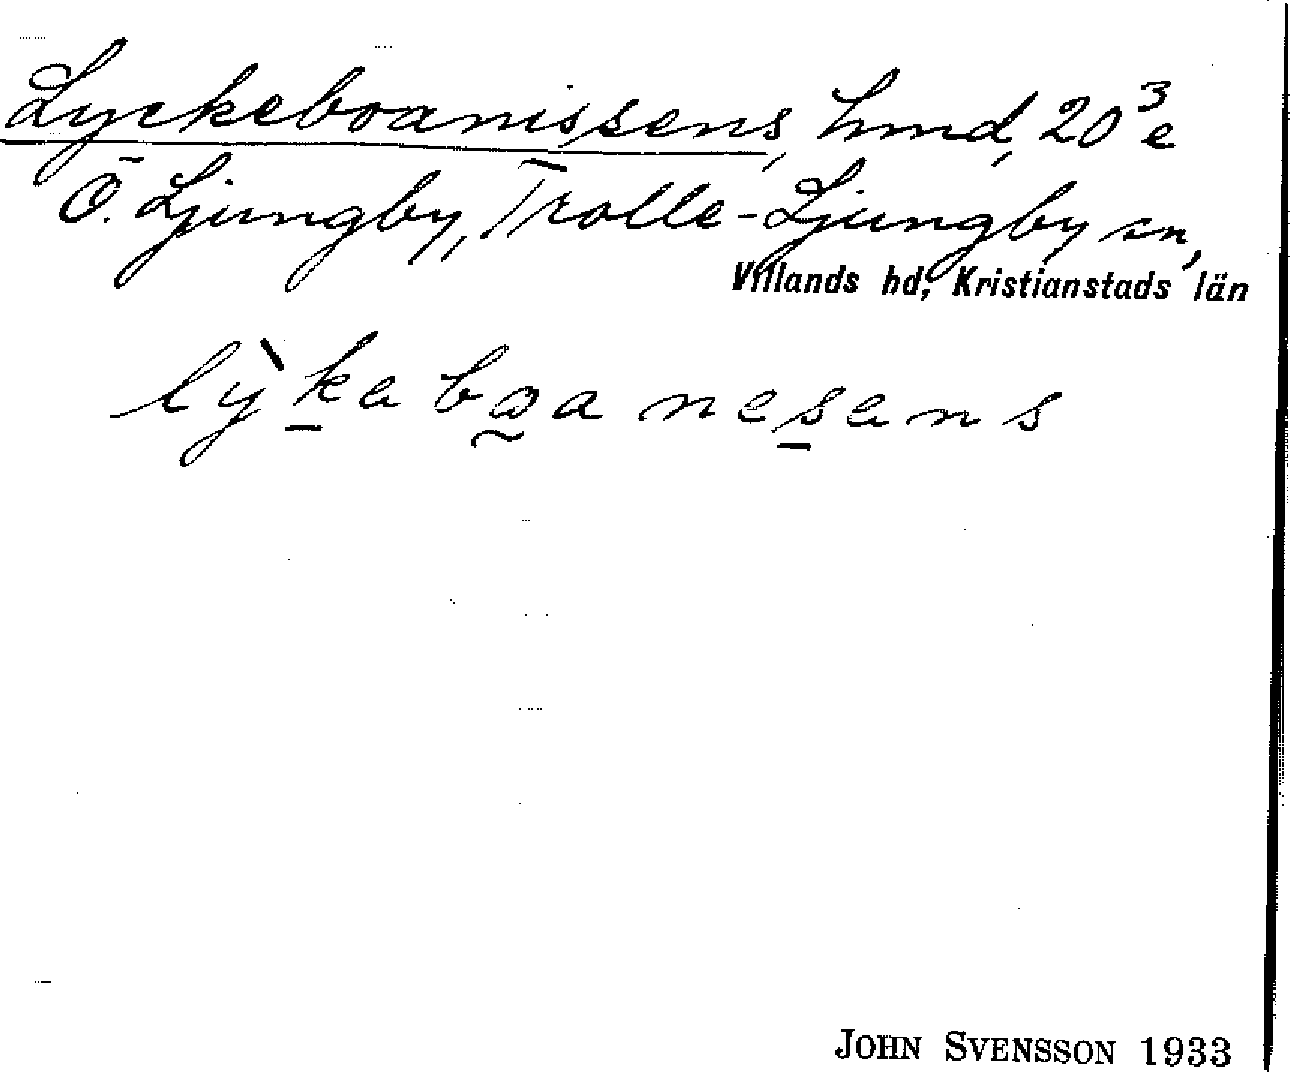 Lyckeboanissens, hmd, 20³e
Ö. Ljungby, Trolle-Ljungby sn,
Villands hd, Kristianstads län
lỳkaboanesans
JOHN SVENSSON 1933